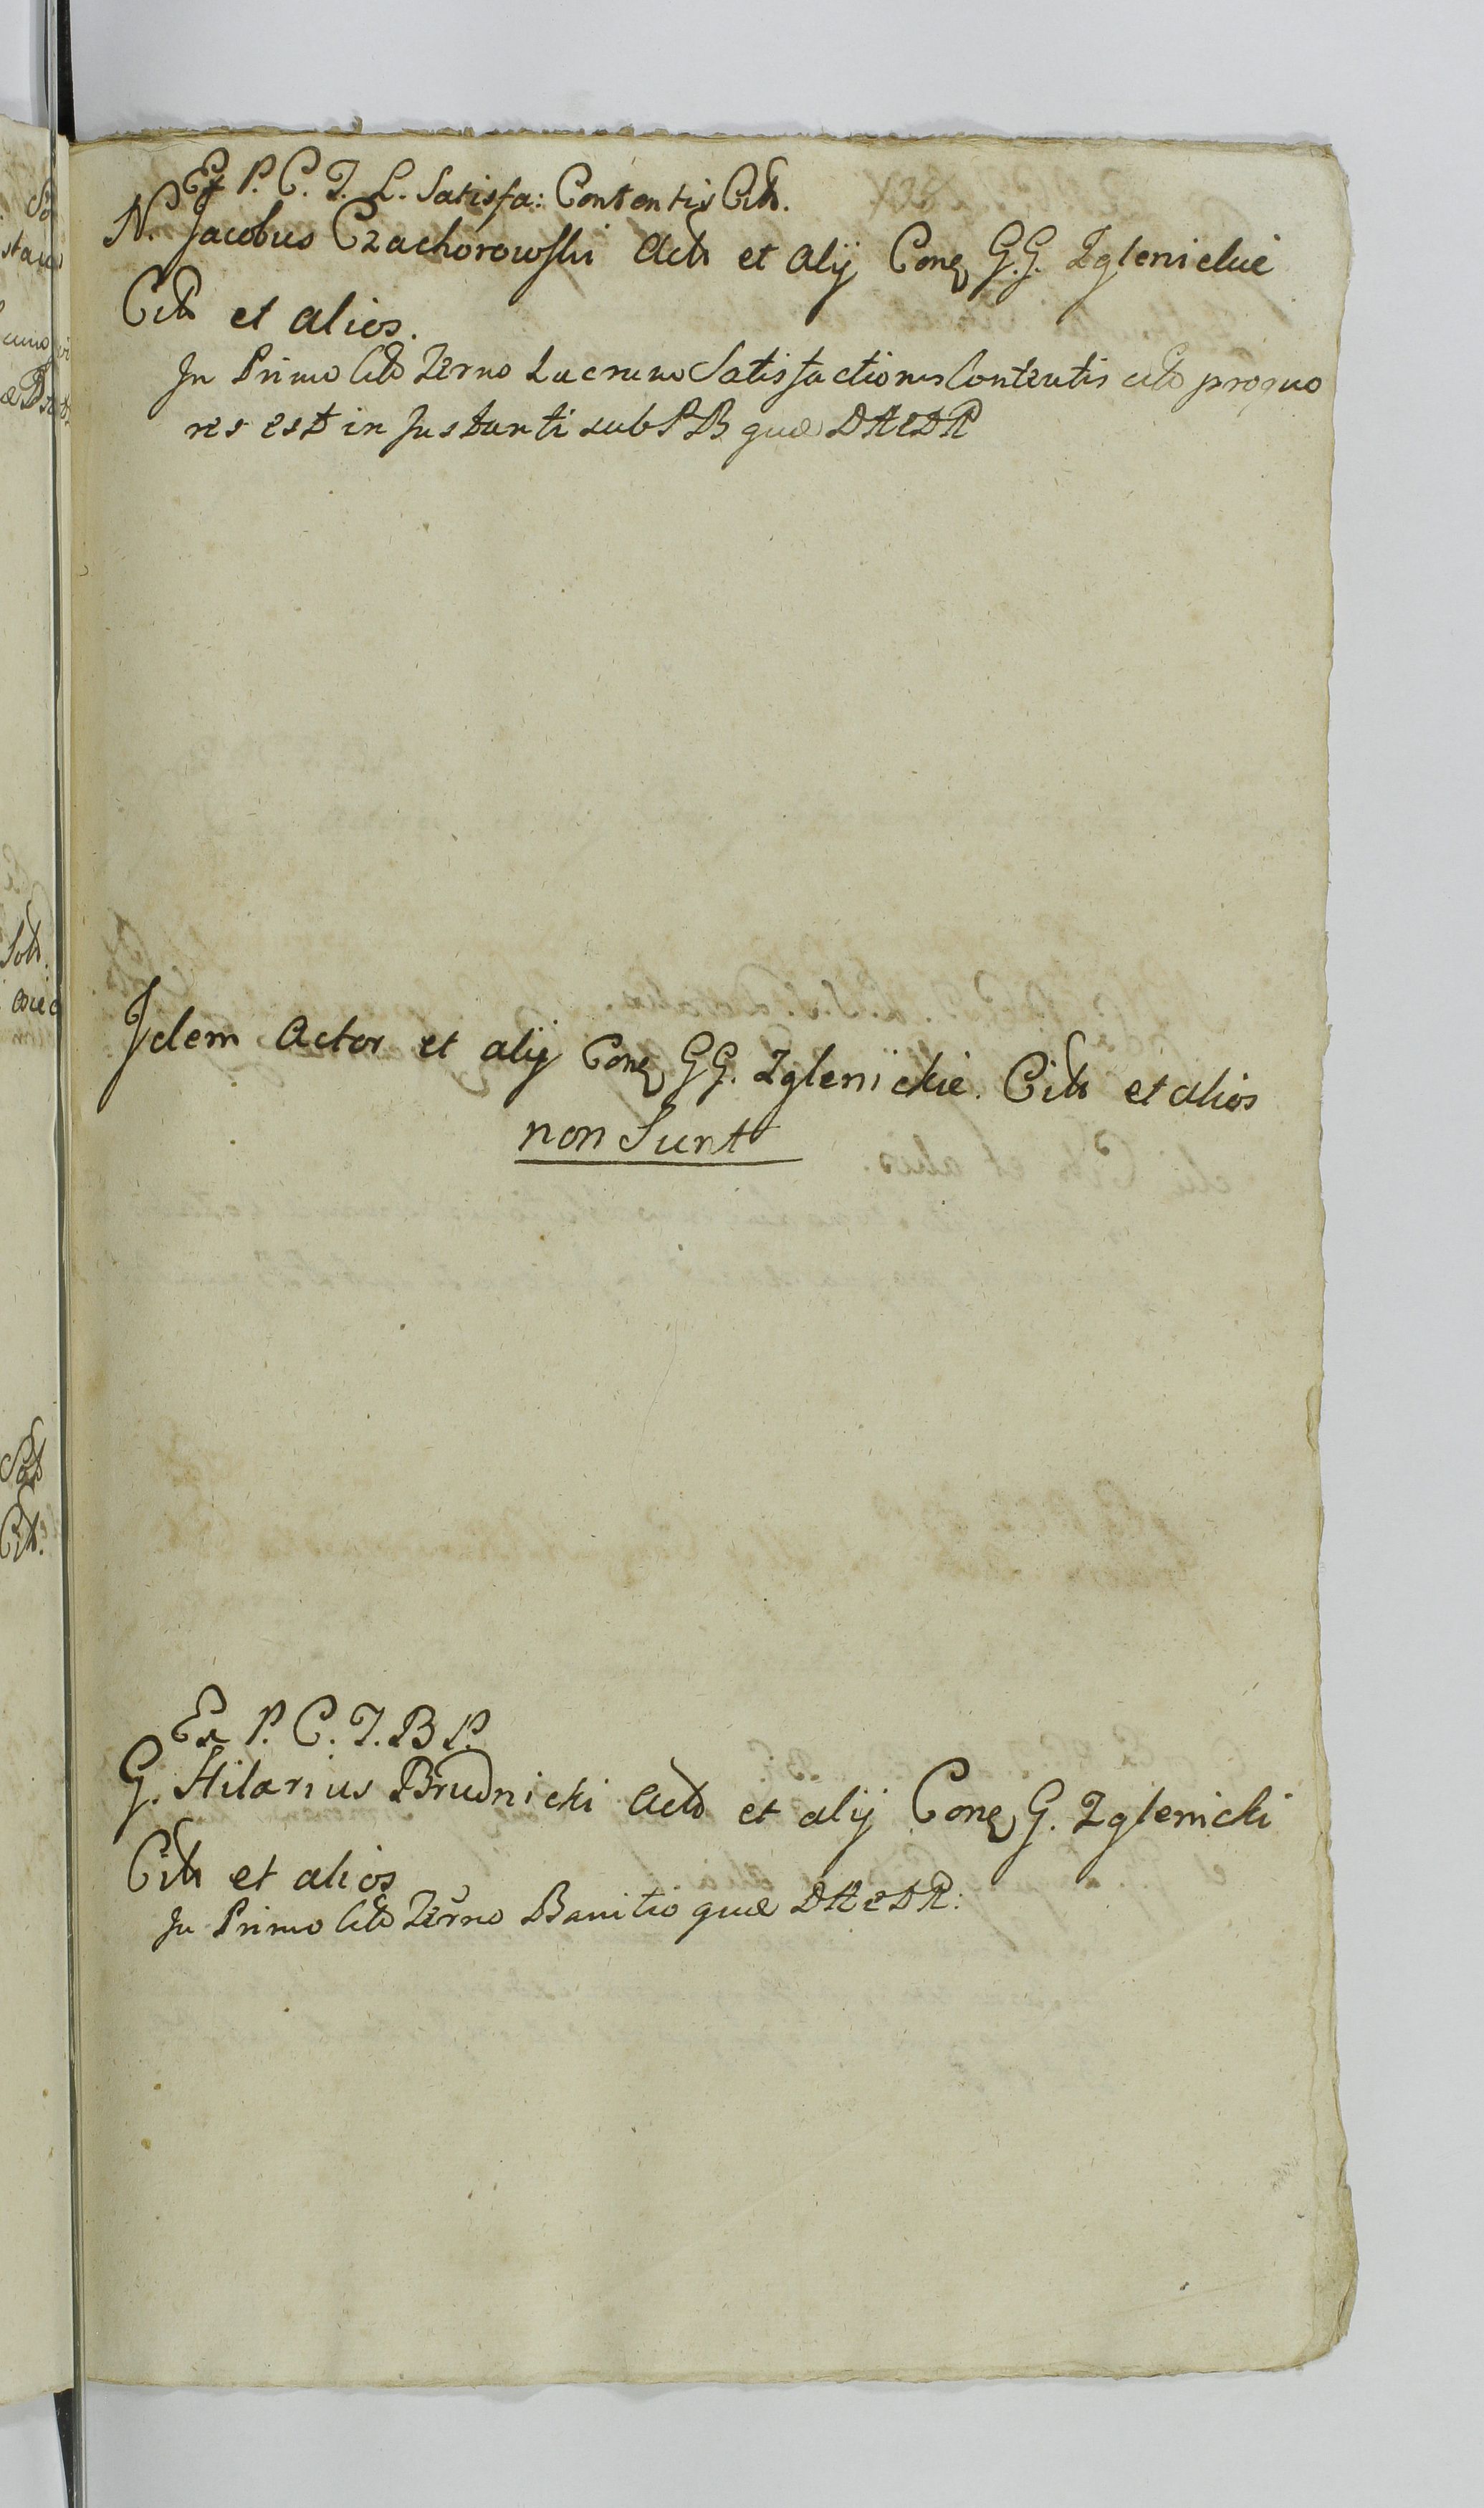 Ex P. C. T. L. Satisfa: Contentis Citt.
N. Jacobus Czachorowski Actt et alij Conq G.G. Zglenickie
Citt et alios.
In Primo Citt Terno Lucrum Satisfactionis Contentis citt pro quo
res est in Instanti sub PB quae DHEDR
Idem Actor et alij Conq GG. Zglenickie. Citt et alios
non Sunt
Ex P. C. T. B P.
G. Hilarius Brudnicki Actt et alij Conq G. Zglenicki
Citt et alios
In Primo Citt Terno Banitio quae DHEDR: